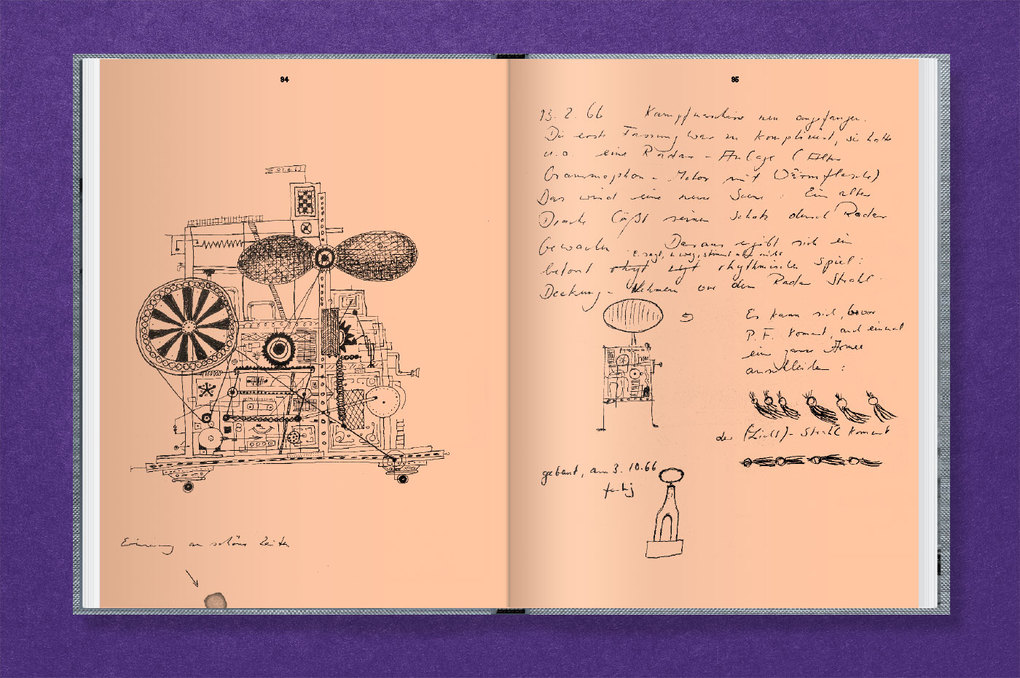 94
Erinnerung an schöne Zeiten
95
13. 2. 66 Kampfmaschine neu angefangen.
Die erste Fassung war zu kompliziert, sie hatte
u.a. eine Radar-Anlage (Alter
Grammophon-Motor mit Wärmflasche)
Das wird eine neue Szene: Ein alter
Drache läßt seinen Schatz durch Radar
bewachen. Daraus ergibt sich ein
betont rhythmisches Spiel:
Deckung-Nehmen vor dem Radar Strahl
Es kann sich, bevor
P.F. kommt, auch einmal
eine ganze Armee
anschleichen:
der (Licht)-Strahl kommt
gebaut, am 3.10.66
fertig